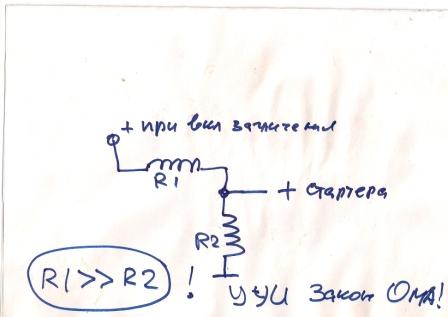 + при вкл зажигания
R1
+ стартера
R2
R1 >> R2 !
учи закон Ома!